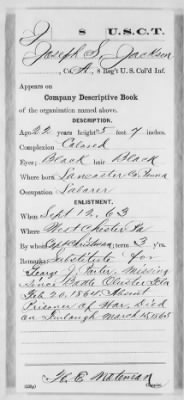 J 8 U.S.C.T.
Joseph S. Jackson
, Co. A, 8 Reg't U.S. Col'd Inf.
Appears on
Company Descriptive Book
of the organization named above.
DESCRIPTION.
Age 22 years; height 5 feet 7 inches.
Complexion Colored
Eyes Black; hair Black
Where born Lancaster Co. Penna
Occupation Laborer
ENLISTMENT.
When Sept 12, 63
Where West Chester Pa
By whom Capt; term 3 y'rs.
Remarks: Substitute for
George J. Missing
since Battle Olustee Fla
Feb 20, 1864. Absent
Prisoner of War. Died
on Furlough March 15, 1865
H. E. Waterman